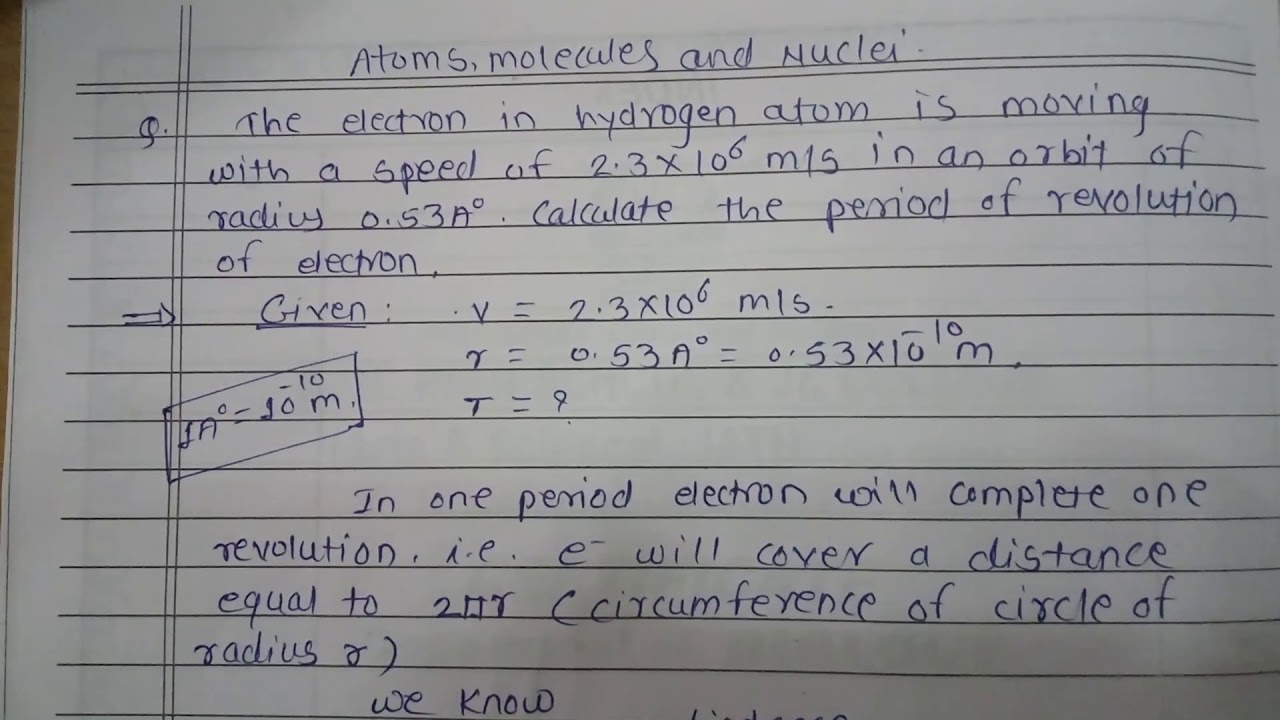 Atoms, molecules and Nuclei.
Q. The electron in hydrogen atom is moving
with a speed of 2.3×10⁶ m/s in an orbit of
radius 0.53A°. Calculate the period of revolution
of electron.
⇒ Given: v = 2.3×10⁶ m/s.
r = 0.53A° = 0.53×10⁻¹⁰m.
1A° = 10⁻¹⁰m.
T = ?
In one period electron will complete one
revolution. i.e. e⁻ will cover a distance
equal to 2πr (circumference of circle of
radius r)
we know